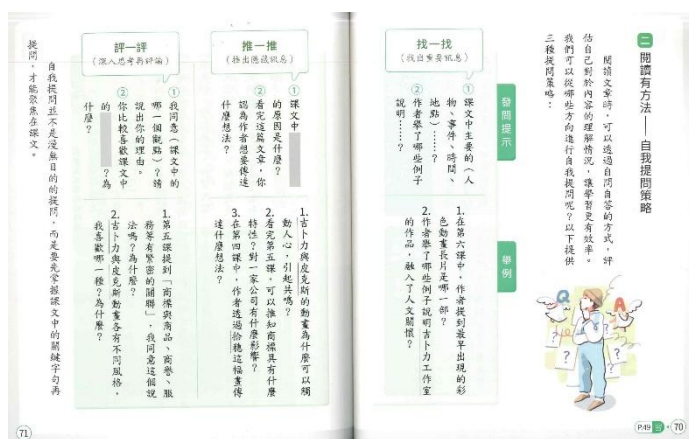 二 閱讀有方法——自我提問策略
閱讀文章時，可以透過自問自答的方式，評
估自己對於內容的理解情況，讓學習更有效率。
我們可以從哪些方向進行自我提問呢？以下提供
三種提問策略：
Q
A
?
?
?
發問提示
舉例
找一找
（找出重要訊息）
①課文中主要的（人
物、事件、時間、
地點）……？
②作者舉了哪些例子
說明……？
1.在第六課中，作者提到最早出現的彩
色動畫長片是哪一部？
2.作者舉了哪些例子說明吉卜力工作室
的作品，融入了人文關懷？
P.49 習
70
推一推
（推出隱藏訊息）
①課文中
的原因是什麼？
②看完這篇文章，你
認為作者想要傳達
什麼想法？
1.吉卜力與皮克斯的動畫為什麼可以觸
動人心，引起共鳴？
2.看完第五課，可以推知商標具有什麼
特性？對一家公司有什麼影響？
3.在第四課中，作者透過拾穗這幅畫傳
達什麼想法？
評一評
（深入思考與評論）
①我同意（課文中的
哪一個觀點）？請
說出你的理由。
②你比較喜歡課文中
的　　？為
什麼？
1.第五課提到「商標與商品、商譽、服
務等有緊密的關聯」，我同意這個說
法嗎？為什麼？
2.吉卜力與皮克斯動畫各有不同風格，
我喜歡哪一種？為什麼？
自我提問並不是漫無目的的提問，而是要先掌握課文中的關鍵字句再
提問，才能聚焦在課文。
71